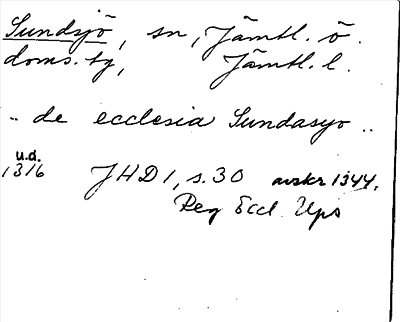 Sundsjö, sn, Jämtl. ö.
doms. tg, Jämtl. l.
.. de ecclesia Sundasyo ..
u.d.
1316 JHD 1, s. 30 avskr 1344.
Reg Eccl. Ups